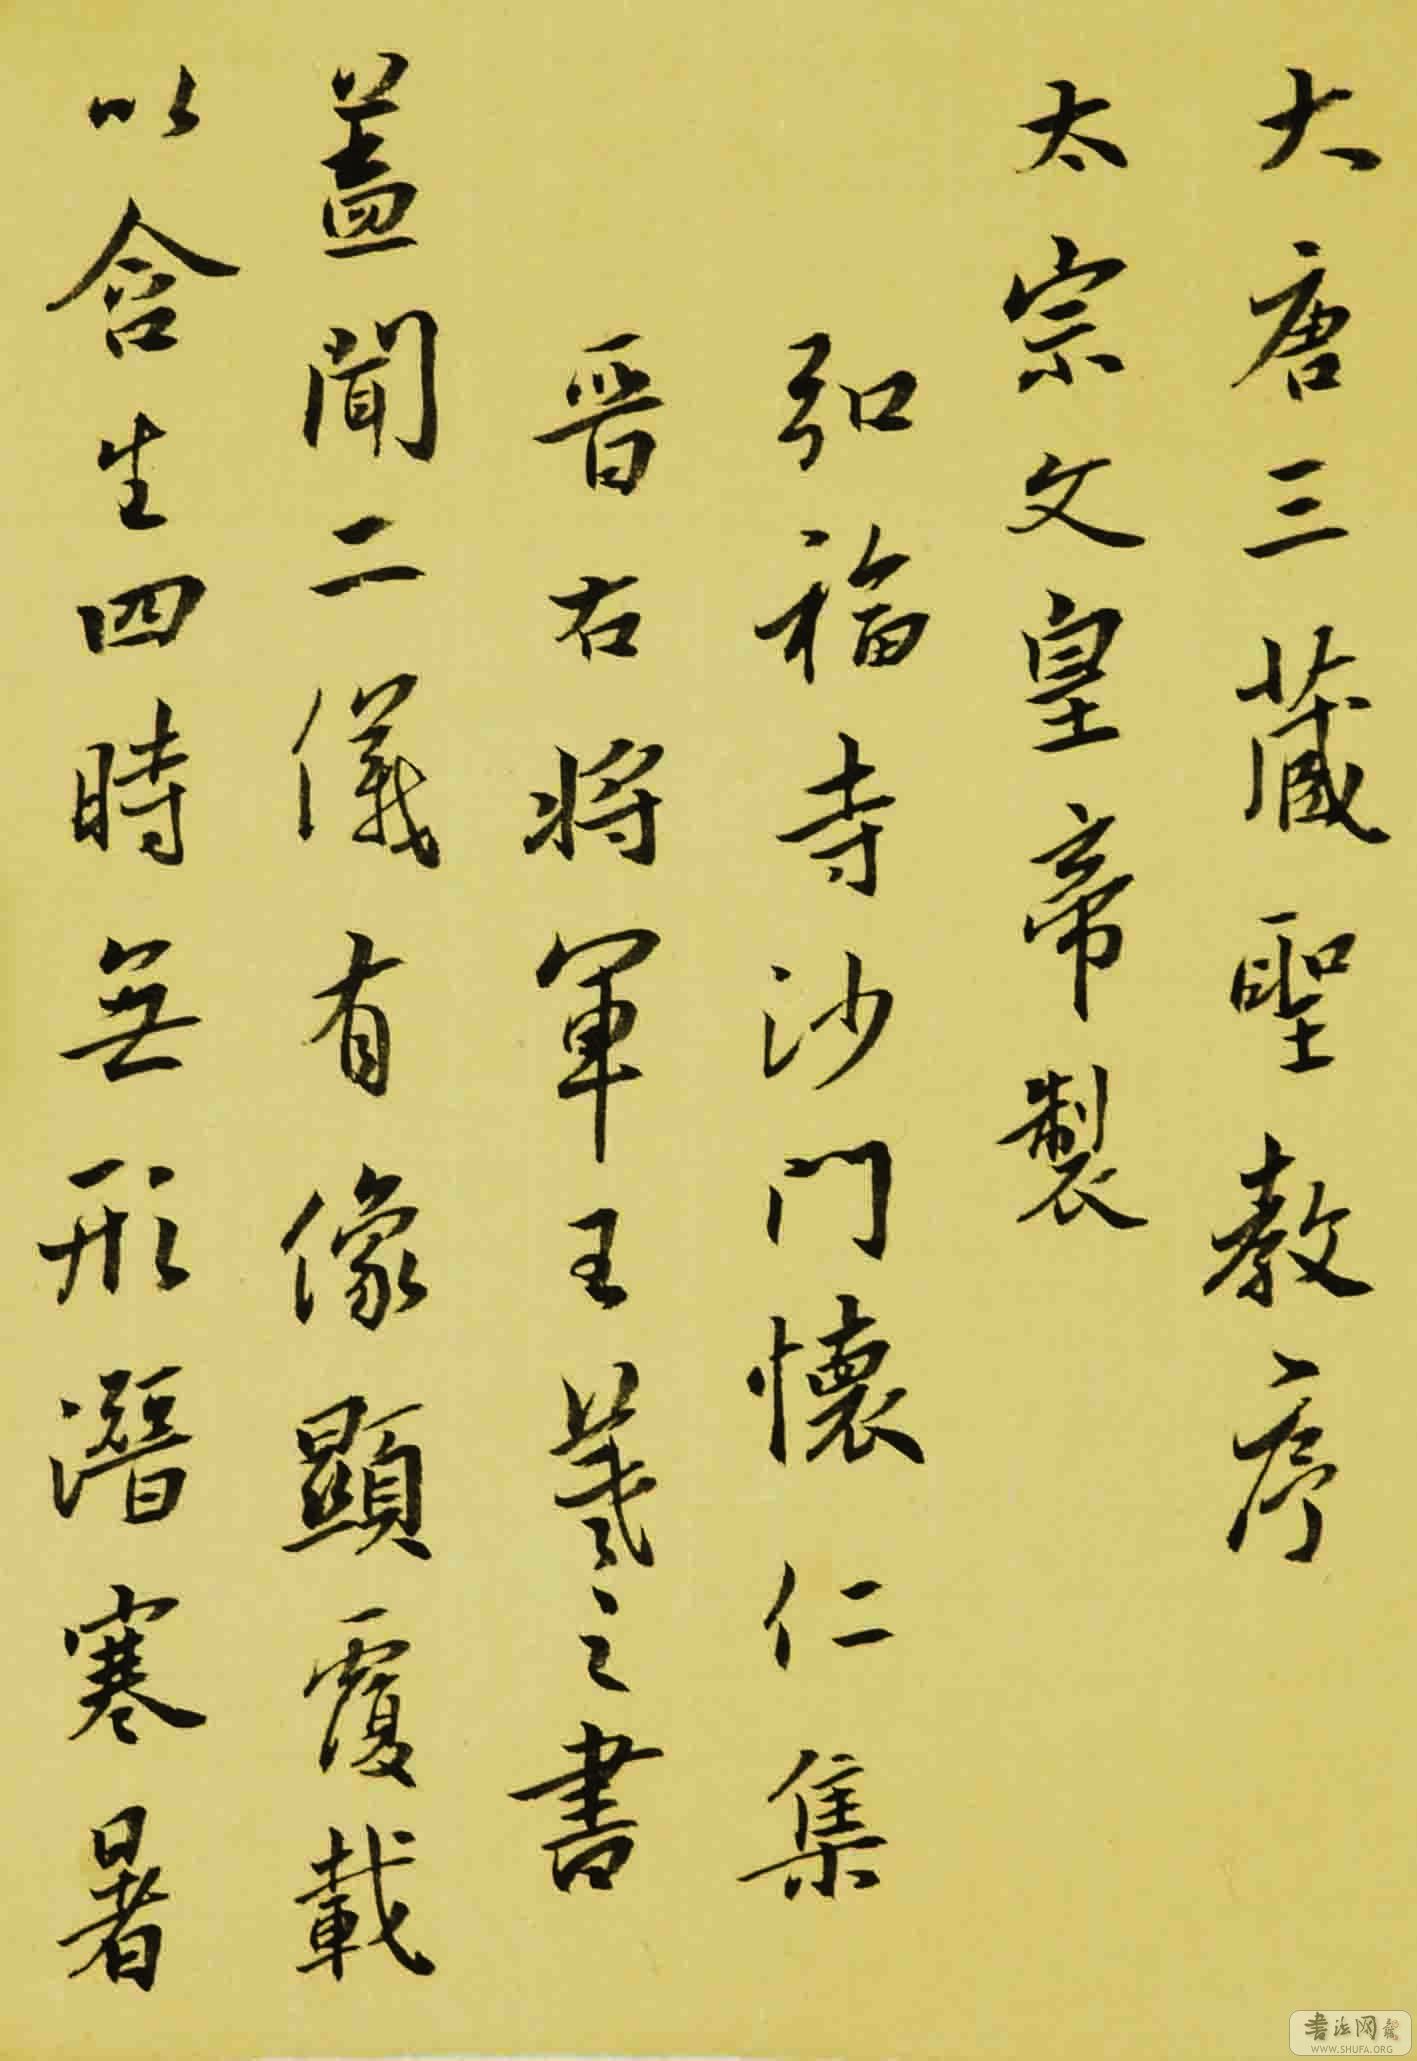 大唐三藏聖教序
太宗文皇帝製
弘福寺沙門懷仁集
晉右將軍王羲之書
蓋聞二儀有像顯覆載
以含生四時無形潛寒暑
書法网
WWW.SHUFA.ORG